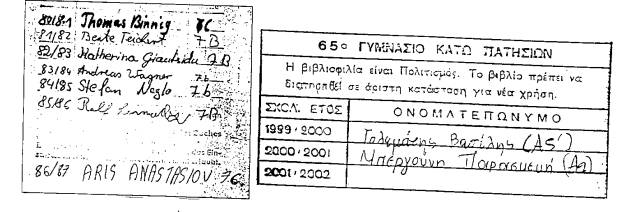 80/81 Thomas Binnig 7C
81/82 Beate Teichert 7B
82/83 Katherina 7B
83/84 Andreas Wagner 7b
84/85 Stefan Neglo 7b
85/86 Ralf 7b
86/87 ARIS ANASTASIOU 7c
65ο ΓΥΜΝΑΣΙΟ ΚΑΤΩ ΠΑΤΗΣΙΩΝ
Η βιβλιοφιλία είναι Πολιτισμός. Το βιβλίο πρέπει να
διατηρηθεί σε άριστη κατάσταση για νέα χρήση.
ΣΧΟΛ. ΕΤΟΣ ΟΝΟΜΑΤΕΠΩΝΥΜΟ
1999-2000 Βασίλης (Α5')
2000-2001 Μπεργούνη Παρασκευή (Α2)
2001-2002